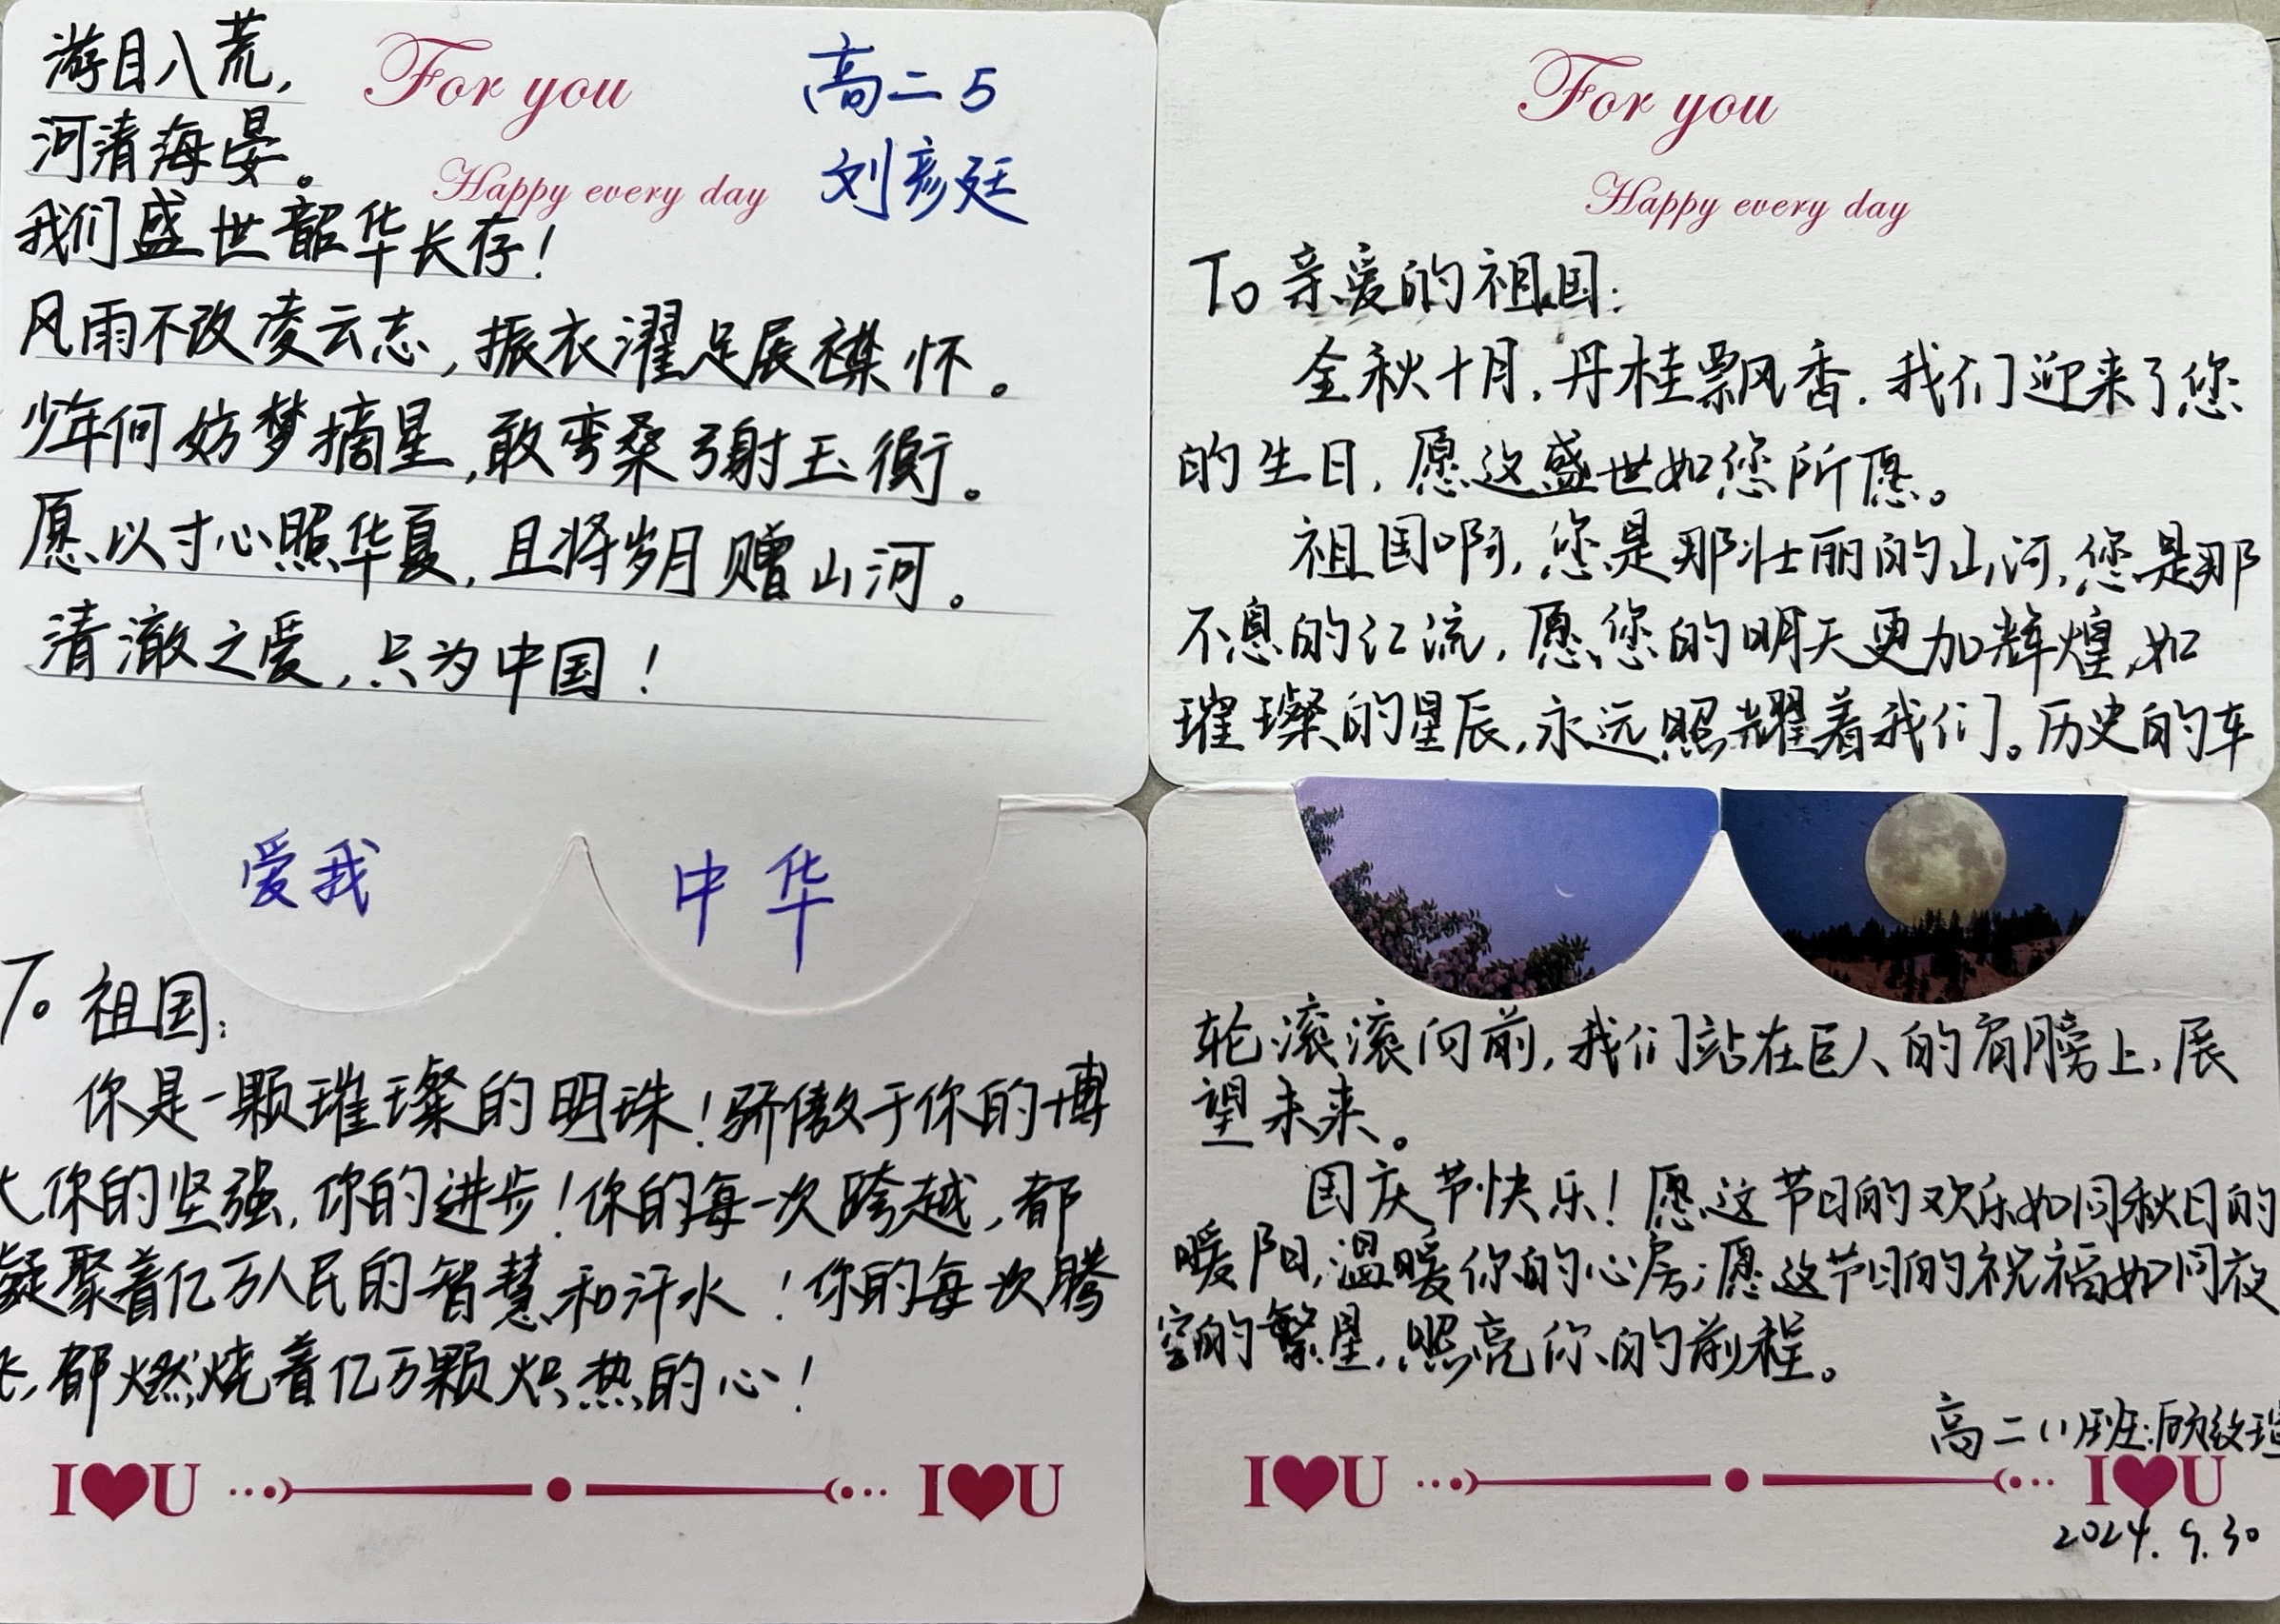 游目八荒，
河清海晏。
我们盛世韶华长存！
风雨不改凌云志，振衣濯足展襟怀。
少年何妨梦摘星，敢弯桑弓射玉衡。
愿以寸心照华夏，且将岁月赠山河。
清澈之爱，只为中国！
For you
Happy every day
高二5
刘彦廷
爱我 中华
To 祖国：
你是一颗璀璨的明珠！骄傲于你的博
大你的坚强，你的进步！你的每一次跨越，都
凝聚着亿万人民的智慧和汗水！你的每次腾
飞，都燃烧着亿万颗炽热的心！
I❤U I❤U
For you
Happy every day
To 亲爱的祖国：
金秋十月，丹桂飘香，我们迎来了您
的生日，愿这盛世如您所愿。
祖国啊，您是那壮丽的山河，您是那
不息的江流，愿您的明天更加辉煌，如
璀璨的星辰，永远照耀着我们。历史的车
轮滚滚向前，我们站在巨人的肩膀上，展
望未来。
国庆节快乐！愿这节日的欢乐如同秋日的
暖阳，温暖你的心房；愿这节日的祝福如同夜
空的繁星，照亮你的前程。
高二（1）班：
I❤U I❤U
2024.9.30